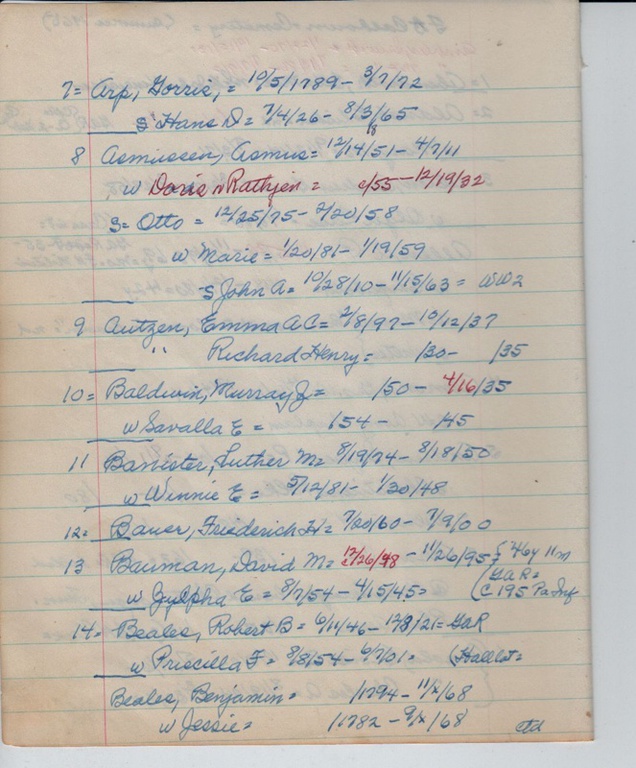 7= Arp, Gorris, = 10/5/1789 - 3/7/72
S Hans D = 7/4/26 - 8/3/65
8 Asmussen, Asmus = 12/14/51 - 4/7/11
w Doris Rathjen = c/55 - 12/19/32
S = Otto = 12/25/75 - 2/20/58
w Marie = 1/20/81 - 1/19/59
S John A = 10/28/10 - 11/15/63 = WW2
9 Autzen, Emma A C = 2/8/97 - 10/12/37
" Richard Henry = /30 - /35
10 = Baldwin, Murray J = /50 - 4/16/35
w Savalla E = 154 - /45
11 Banister, Luther M = 8/19/74 - 8/18/50
w Winnie E = 5/12/81 - 1/30/48
12 = Bauer, Friederich H = 7/20/60 - 7/9/00
13 Bauman, David M = 12/26/48 - 11/26/95 { 46y 11m
(GAR =
w Zylpha E = 8/7/54 - 4/15/45 = (C 195 Pa Inf
14 = Beales, Robert B = 6/11/46 - 12/8/21 = GAR
w Priscilla F = 8/8/54 - 6/7/01 = (Hallet =
Beales, Benjamin = /1794 - 11/x/68
w Jessie = /1782 - 9/x/68
ctd